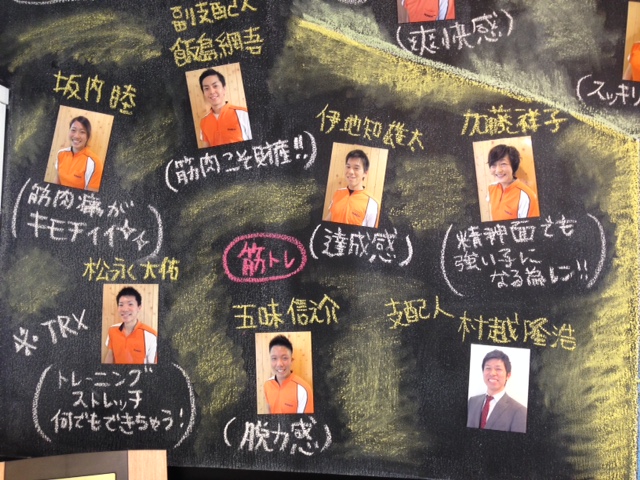 副支配人
飯島網吾
(爽快感)
(スッキリ
坂内睦
(筋肉こそ財産!!)
伊地知雄太
加藤祥子
(筋肉痛が
キモチイイ☆☆)
(達成感)
(精神面でも
強い子に
なる為に!!)
筋トレ
松永大佑
※TRX
五味信介
支配人 村越隆浩
(トレーニング
ストレッチ
何でもできちゃう!)
(脱力感)